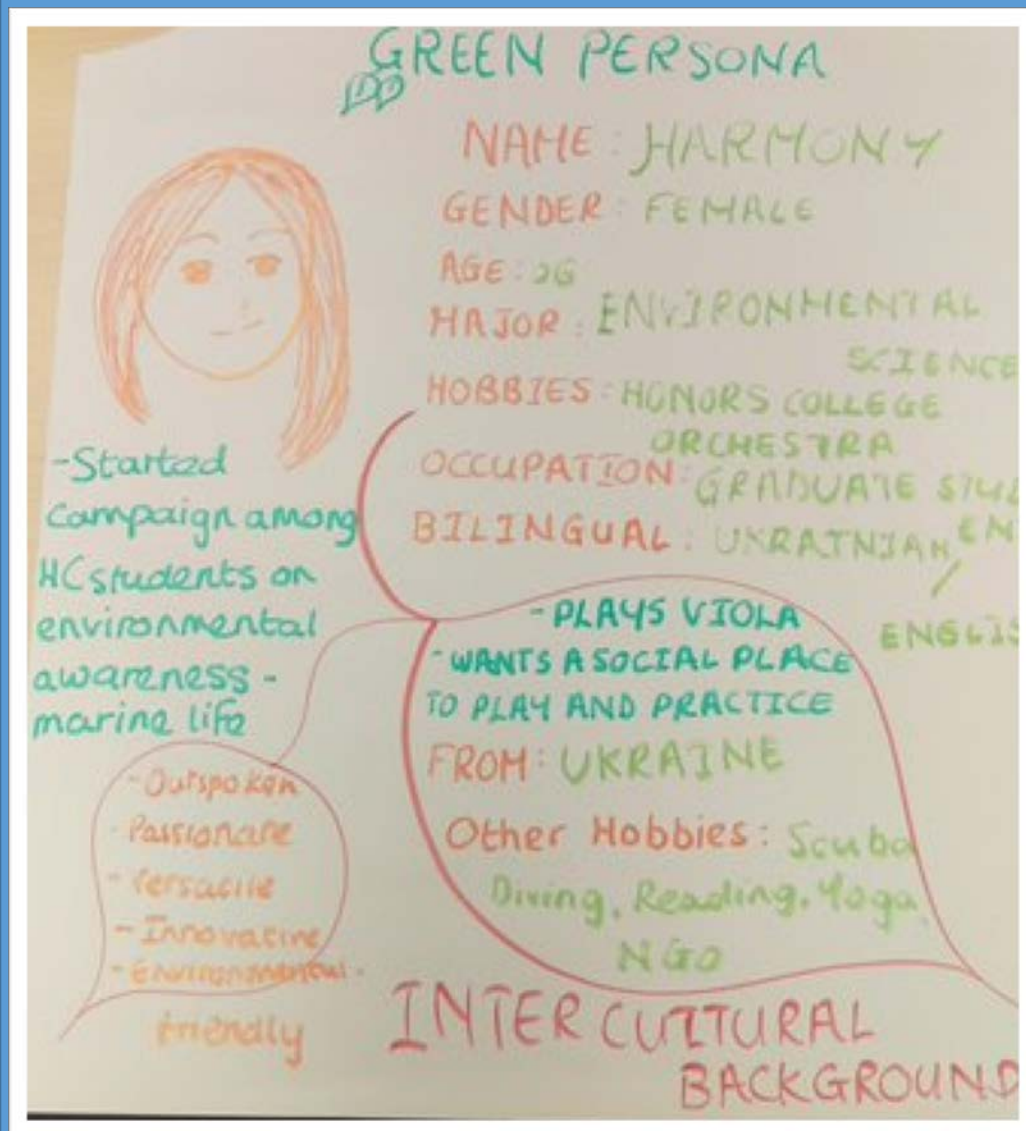 GREEN PERSONA
NAME : HARMONY
GENDER : FEMALE
AGE : 26
MAJOR : ENVIRONMENTAL
SCIENCE
HOBBIES : HONORS COLLEGE
ORCHESTRA
OCCUPATION : GRADUATE STUD
EN
BILINGUAL : UKRAINIAN /
ENGLIS
-Started
campaign among
HC students on
environmental
awareness -
marine life
- PLAYS VIOLA
- WANTS A SOCIAL PLACE
TO PLAY AND PRACTICE
FROM : UKRAINE
Other Hobbies : Scuba
Diving, Reading, Yoga,
NGO
- Outspoken
- Passionate
- Versatile
- Innovative
- Environmental -
friendly
INTERCULTURAL
BACKGROUND